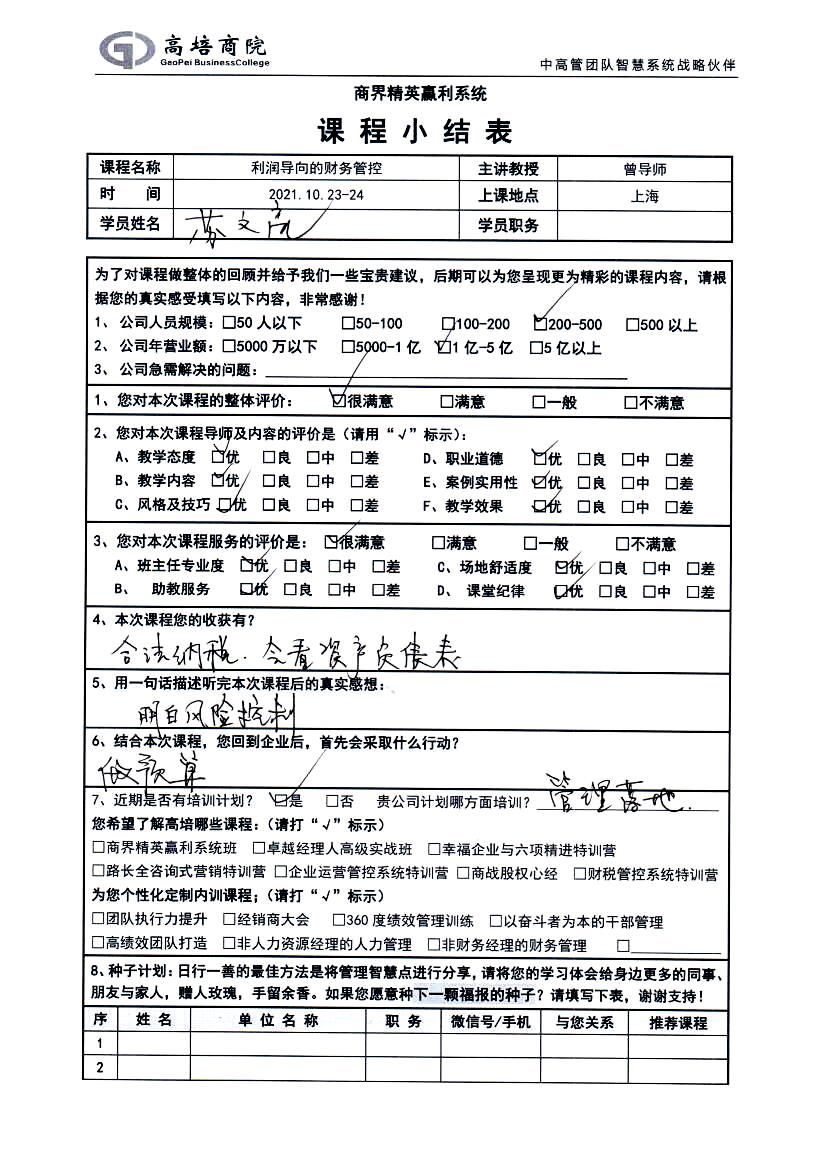 高培商院
GaoPei BusinessCollege
中高管团队智慧系统战略伙伴
商界精英赢利系统
课程小结表
课程名称 利润导向的财务管控 主讲教授 曾导师
时 间 2021.10.23-24 上课地点 上海
学员姓名 苏文亮 学员职务
为了对课程做整体的回顾并给予我们一些宝贵建议，后期可以为您呈现更为精彩的课程内容，请根
据您的真实感受填写以下内容，非常感谢！
1、 公司人员规模：□50 人以下 □50-100 □100-200 ☑200-500 □500 以上
2、 公司年营业额：□5000 万以下 □5000-1 亿 ☑1 亿-5 亿 □5 亿以上
3、 公司急需解决的问题：
1、您对本次课程的整体评价： ☑很满意 □满意 □一般 □不满意
2、您对本次课程导师及内容的评价是（请用“√”标示）：
A、教学态度 ☑优 □良 □中 □差 D、职业道德 ☑优 □良 □中 □差
B、教学内容 ☑优 □良 □中 □差 E、案例实用性 ☑优 □良 □中 □差
C、风格及技巧 ☑优 □良 □中 □差 F、教学效果 ☑优 □良 □中 □差
3、您对本次课程服务的评价是： ☑很满意 □满意 □一般 □不满意
A、班主任专业度 ☑优 □良 □中 □差 C、场地舒适度 ☑优 □良 □中 □差
B、 助教服务 ☑优 □良 □中 □差 D、 课堂纪律 ☑优 □良 □中 □差
4、本次课程您的收获有？
合法纳税．会看资产负债表
5、用一句话描述听完本次课程后的真实感想：
明白风险控制
6、结合本次课程，您回到企业后，首先会采取什么行动？
做预算
7、近期是否有培训计划？ ☑是 □否 贵公司计划哪方面培训？ 管理落地．
您希望了解高培哪些课程：（请打“√”标示）
□商界精英赢利系统班 □卓越经理人高级实战班 □幸福企业与六项精进特训营
□路长全咨询式营销特训营 □企业运营管控系统特训营 □商战股权心经 □财税管控系统特训营
为您个性化定制内训课程；（请打“√”标示）
□团队执行力提升 □经销商大会 □360 度绩效管理训练 □以奋斗者为本的干部管理
□高绩效团队打造 □非人力资源经理的人力管理 □非财务经理的财务管理 □
8、种子计划：日行一善的最佳方法是将管理智慧点进行分享，请将您的学习体会给身边更多的同事、
朋友与家人，赠人玫瑰，手留余香。如果您愿意种下一颗福报的种子？请填写下表，谢谢支持！
序 姓 名 单 位 名 称 职 务 微信号/手机 与您关系 推荐课程
1
2